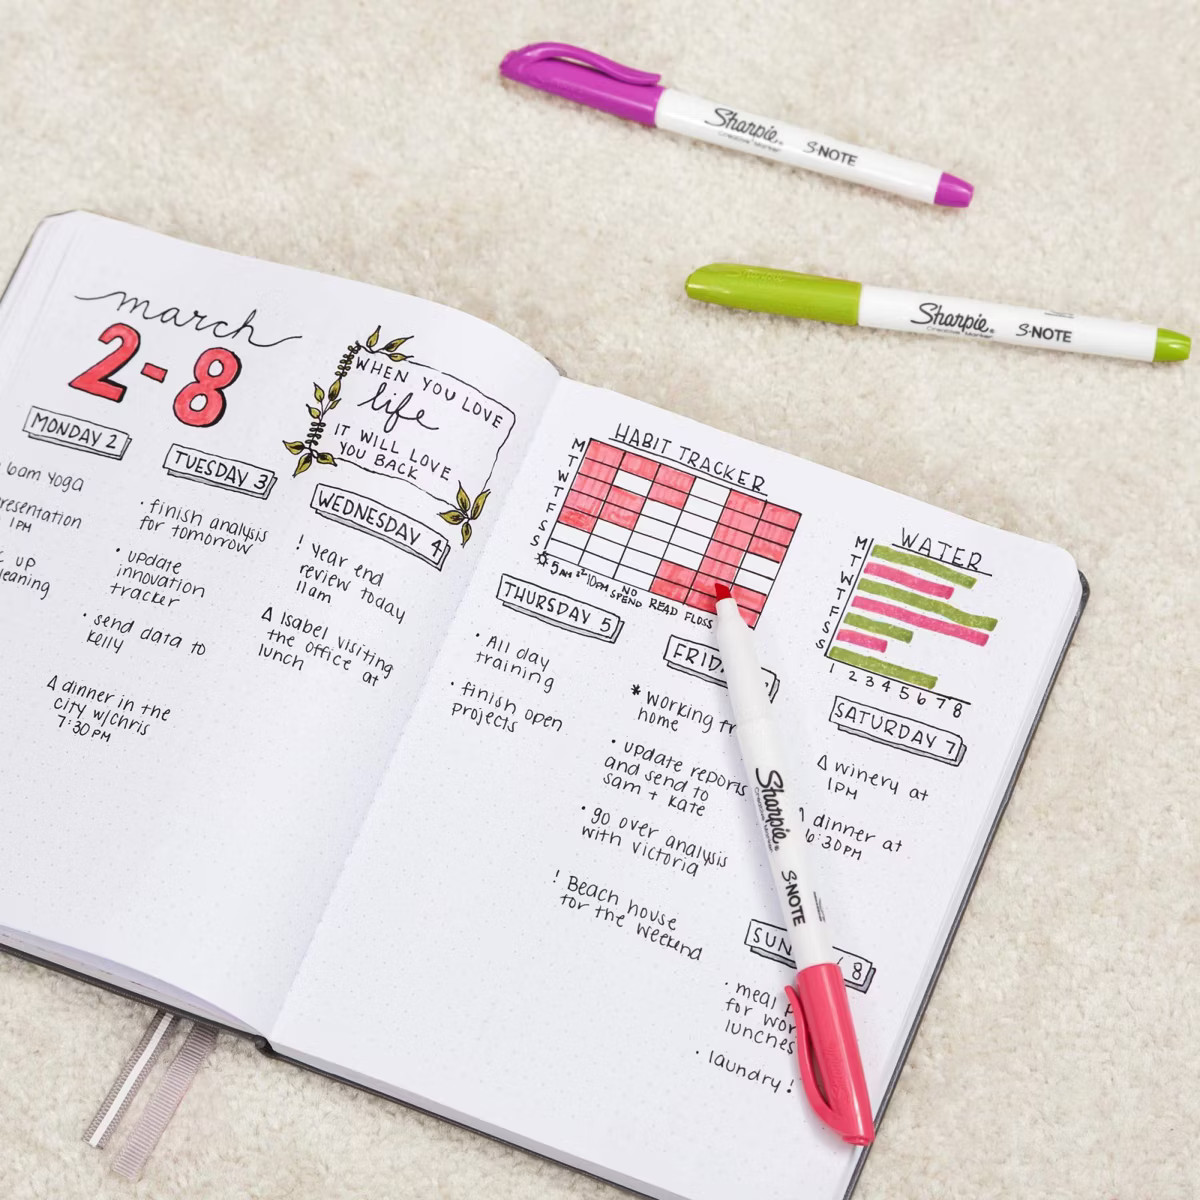 Sharpie
Creative Marker
S·NOTE
Sharpie
Creative Marker
S·NOTE
march
2-8
WHEN YOU LOVE
life
IT WILL LOVE
YOU BACK
MONDAY 2
6am yoga
1PM
up
TUESDAY 3
· finish analysis
for tomorrow
· update
innovation
tracker
· send data to
Kelly
Δ dinner in the
city w/chris
7:30PM
WEDNESDAY 4
! Year end
review today
11am
Δ Isabel visiting
the office at
lunch
HABIT TRACKER
M
T
W
T
F
S
S
5AM 10PM NO SPEND READ FLOSS
WATER
M
T
W
T
F
S
S
1 2 3 4 5 6 7 8
THURSDAY 5
· All day
training
· finish open
projects
* working
home
· update reports
and send to
sam + kate
· go over analysis
with victoria
! Beach house
for the weekend
SATURDAY 7
Δ winery at
1PM
dinner at
6:30PM
8
· meal
for
lunches
· laundry!
Sharpie
Creative Marker
S·NOTE